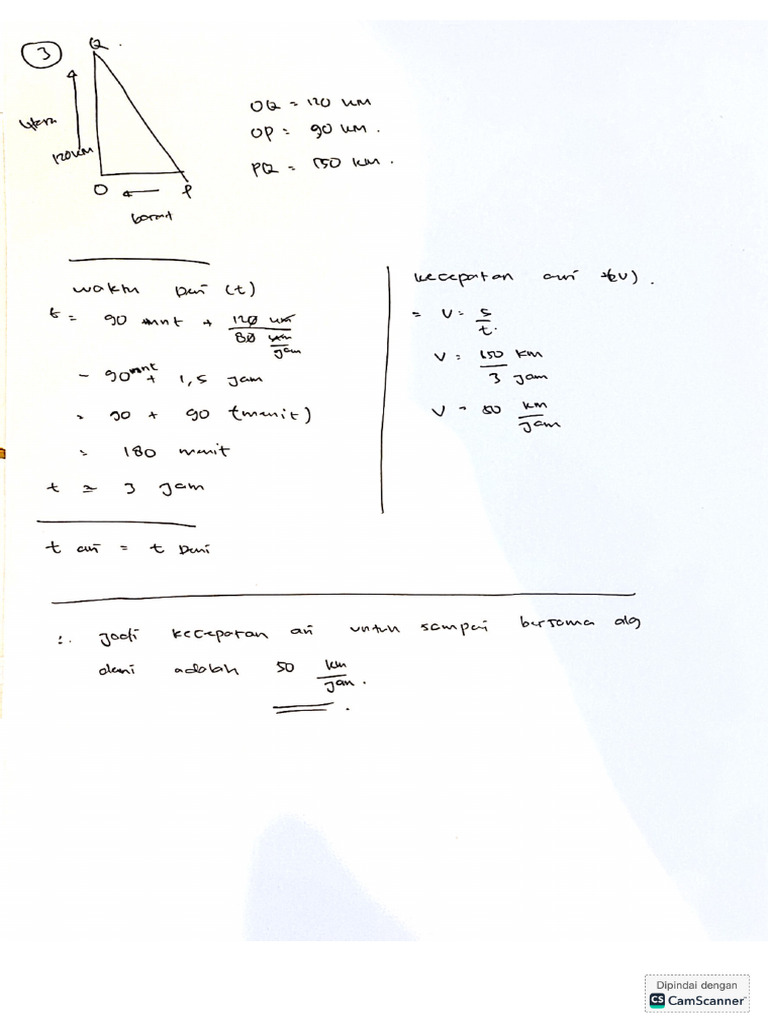 3
Q.
Utara
120 KM
O
P
barat
OQ = 120 KM
OP = 90 KM.
PQ = 150 KM.
waktu Deni (t)
t = 90 mnt + 120 km / 80 km/jam
= 90 mnt + 1,5 jam
= 90 + 90 (menit)
= 180 menit
t = 3 jam
t ari = t Deni
kecepatan ari (v).
= v = s/t.
v = 150 km / 3 jam
v = 50 km/jam
∴ jadi kecepatan ari untuk sampai bersama dg
deni adalah 50 km/jam.
Dipindai dengan
CS CamScanner